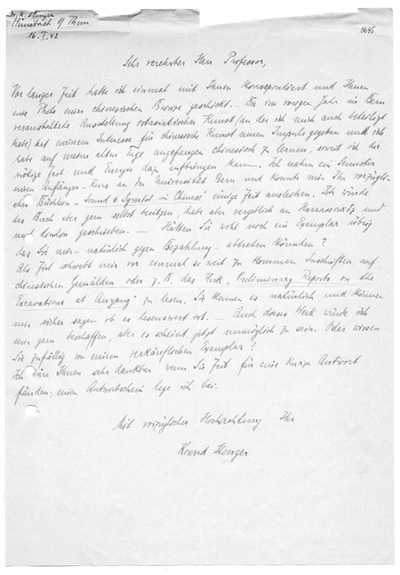 Münsbach b/ Thun
16. I. 42
Sehr verehrter Herr Professor,
Vor langer Zeit hatte ich einmal mit Ihnen korrespondiert und Ihnen
eine Photo einer chinesischen Bronze geschickt. Die im vorigen Jahr in Bern
veranstaltete Ausstellung ostasiatischer Kunst (an der ich mich auch beteiligt
habe) hat meinem Interesse für chinesische Kunst neuen Impuls gegeben und ich
habe auf meine alten Tage angefangen chinesisch zu lernen, soweit ich die
nötige Zeit und Energie dazu aufbringen kann. Ich nahm ein Semester
einen Anfänger-Kurs an der Universität Bern und konnte mir Ihr vorzügli-
ches Büchlein "Sound & Symbol in Chinese" einige Zeit ausleihen. Ich würde
das Buch aber gern selbst besitzen, habe aber vergeblich an Harrassowitz und
nach London geschrieben. — Hätten Sie wohl noch ein Exemplar übrig
das Sie mir – natürlich gegen Bezahlung – abtreten könnten?
Als Ziel schwebt mir vor einmal so weit zu kommen Inschriften auf
chinesischen Gemälden oder z. B. das Werk "Preliminary Reports on the
Excavations at Anyang" zu lesen. Sie kennen es natürlich und können
mir sicher sagen ob es lesenswert ist. — Auch dieses Werk würde ich
mir gern beschaffen, aber es scheint jetzt unmöglich zu sein. Oder wissen
Sie zufällig von einem verkäuflichen Exemplar?
Ich wäre Ihnen sehr dankbar wenn Sie Zeit für eine kurze Antwort
fänden; einen Antwortschein lege ich bei.
Mit vorzüglicher Hochachtung Ihr
Konrad